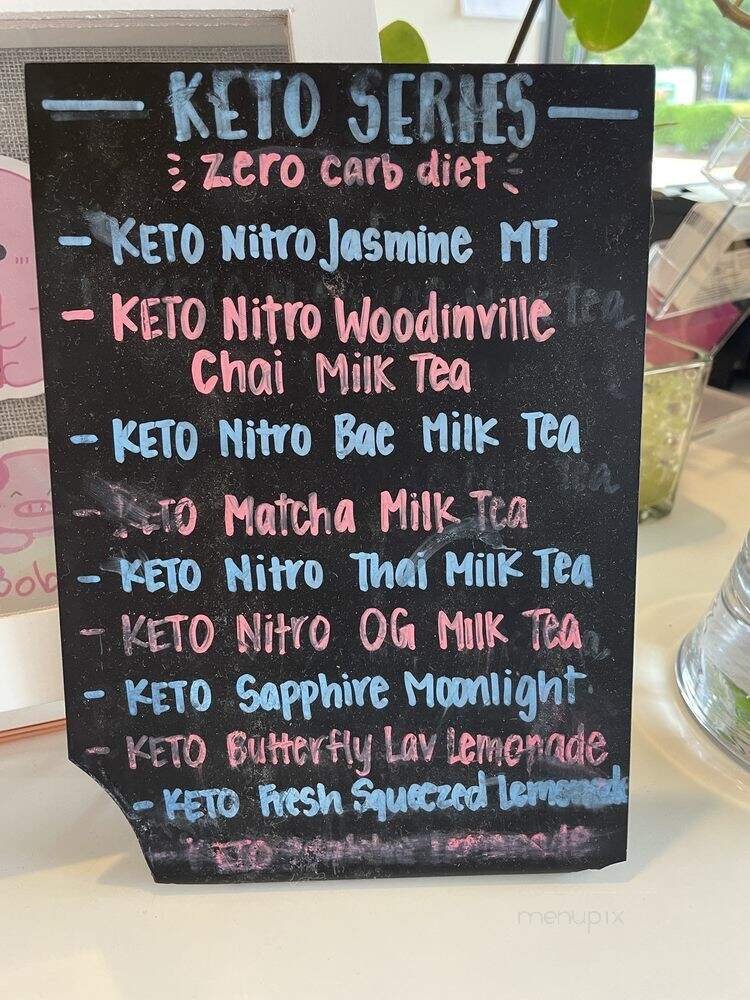 KETO SERIES
zero carb diet
- KETO Nitro Jasmine MT
- KETO Nitro Woodinville
Chai Milk Tea
- KETO Nitro Bae Milk Tea
- KETO Matcha Milk Tea
- KETO Nitro Thai Milk Tea
- KETO Nitro OG Milk Tea
- KETO Sapphire Moonlight
- KETO Butterfly Lav Lemonade
- KETO Fresh Squeezed Lemonade
KETO
Bob
menupix